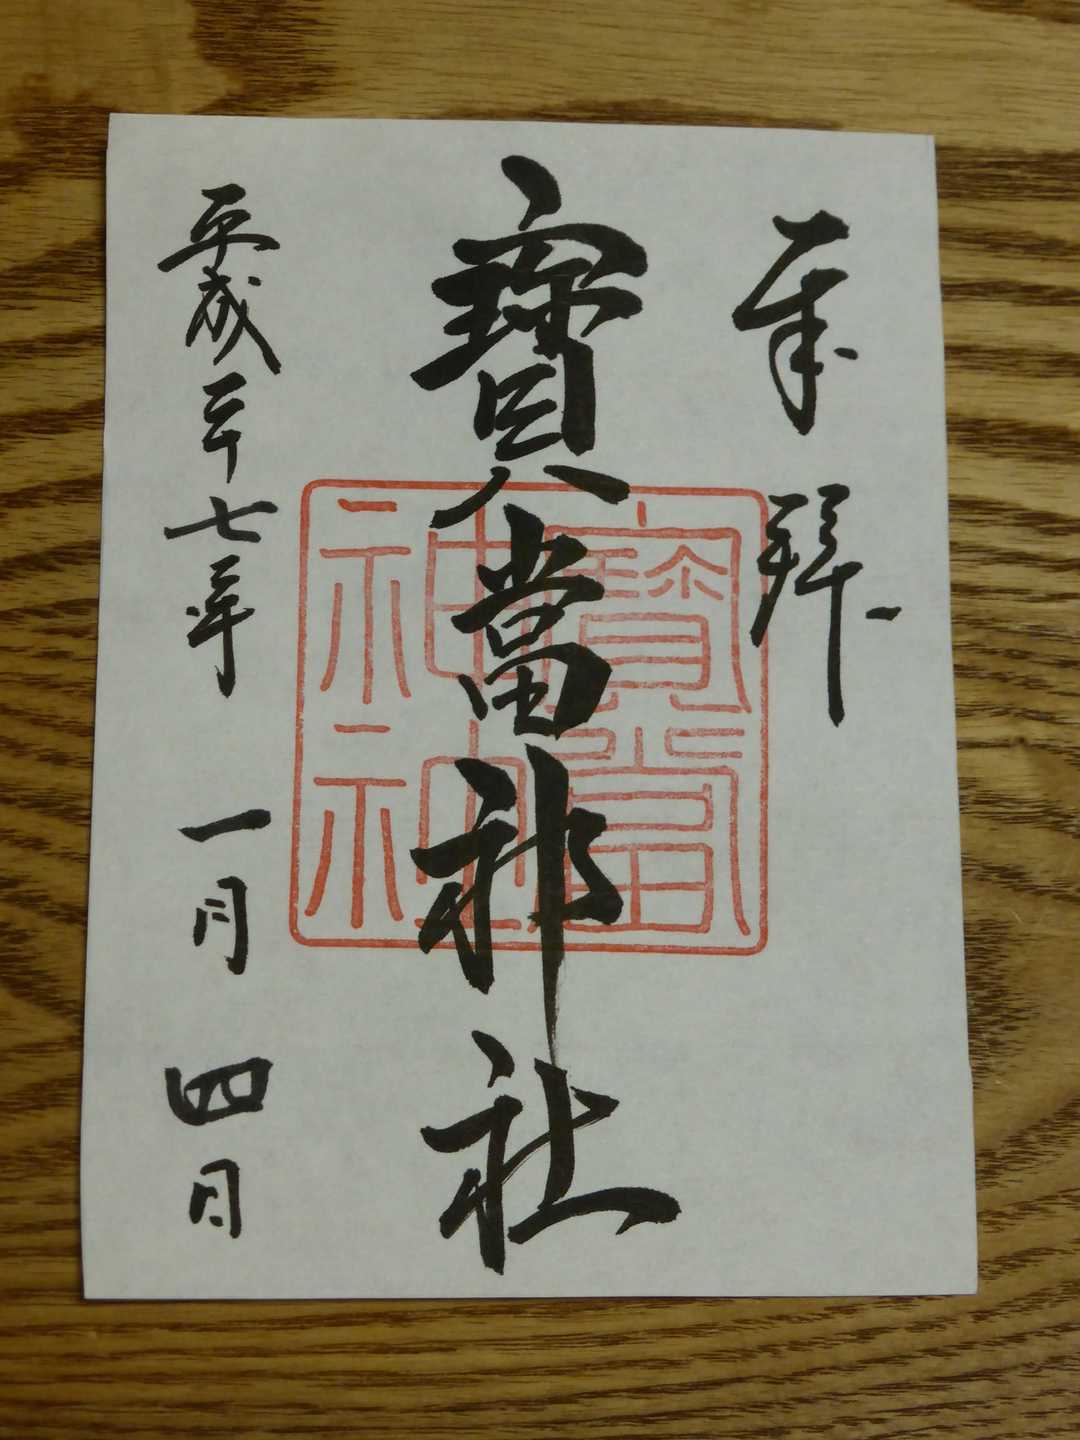 奉拝
寳當神社
寳當
神社
平成二十七年 一月 四日